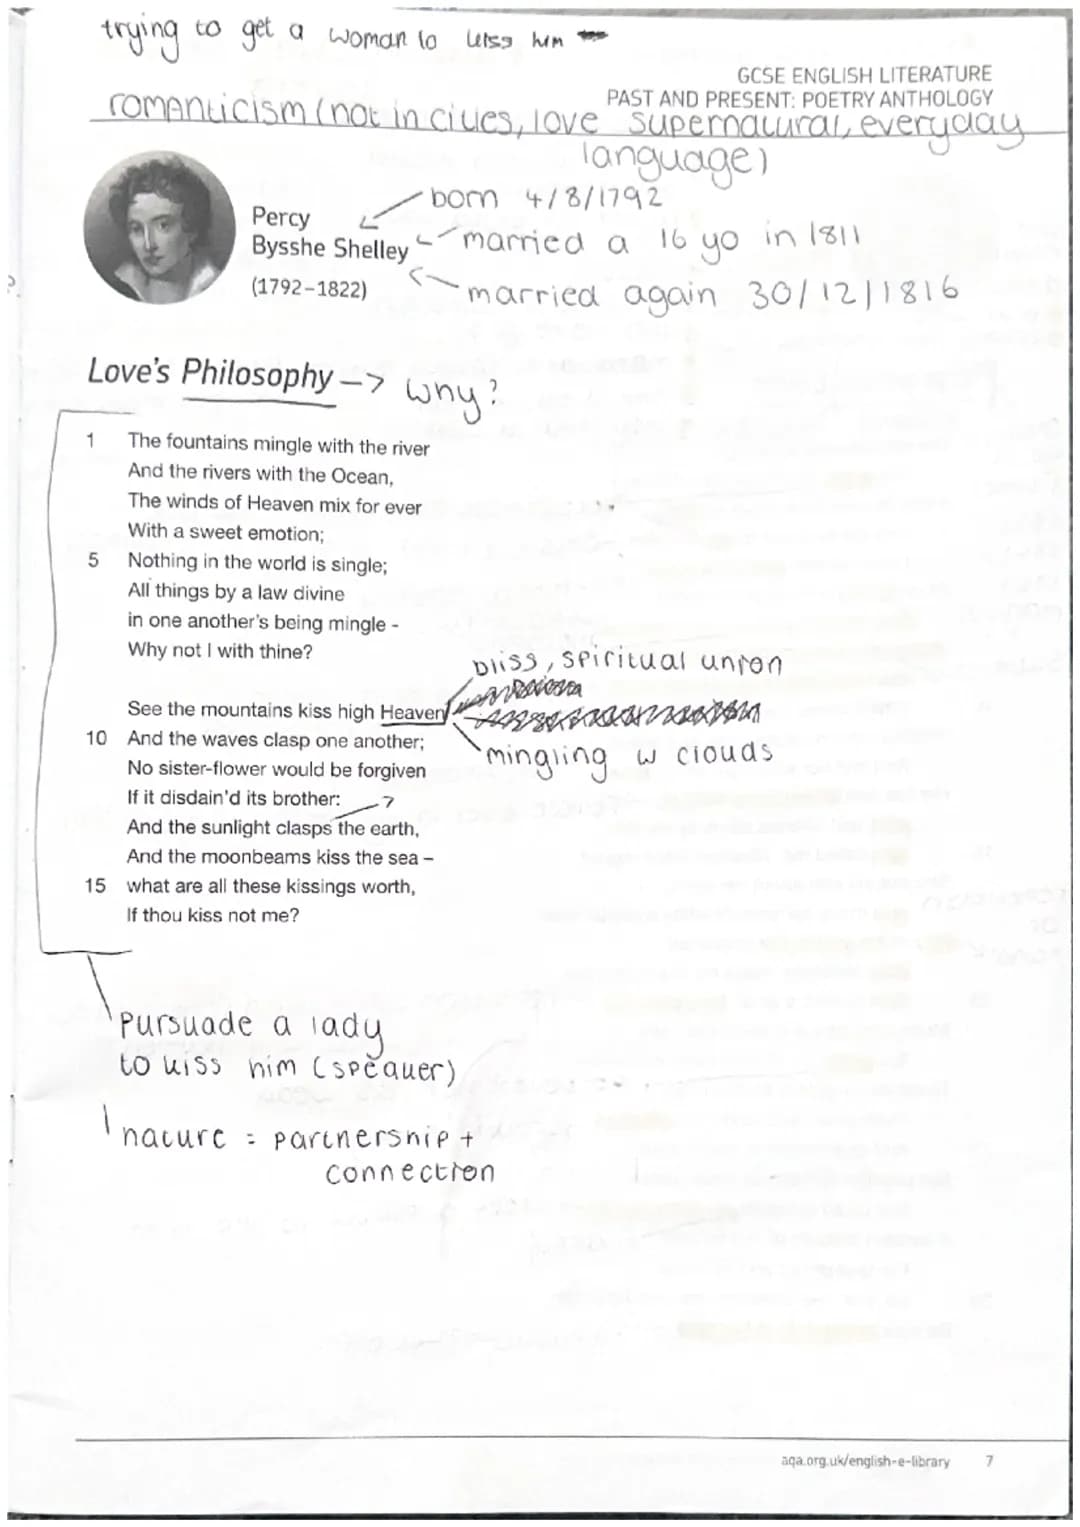 trying to get a woman to kiss him
GCSE ENGLISH LITERATURE
PAST AND PRESENT: POETRY ANTHOLOGY
romanticism (not in cities, love supernatural, everyday
language)
born 4/8/1792
Percy
Bysshe Shelley
married a 16 yo in 1811
(1792–1822)
married again 30/12/1816
Love's Philosophy –> why?
1 The fountains mingle with the river
And the rivers with the Ocean,
The winds of Heaven mix for ever
With a sweet emotion;
5 Nothing in the world is single;
All things by a law divine
in one another's being mingle -
Why not I with thine?
bliss, spiritual union
See the mountains kiss high Heaven
10 And the waves clasp one another;
mingling w clouds
No sister-flower would be forgiven
If it disdain'd its brother:
And the sunlight clasps the earth,
And the moonbeams kiss the sea –
15 what are all these kissings worth,
If thou kiss not me?
pursuade a lady
to kiss him (speaker)
nature = partnership +
connection
aqa.org.uk/english-e-library 7